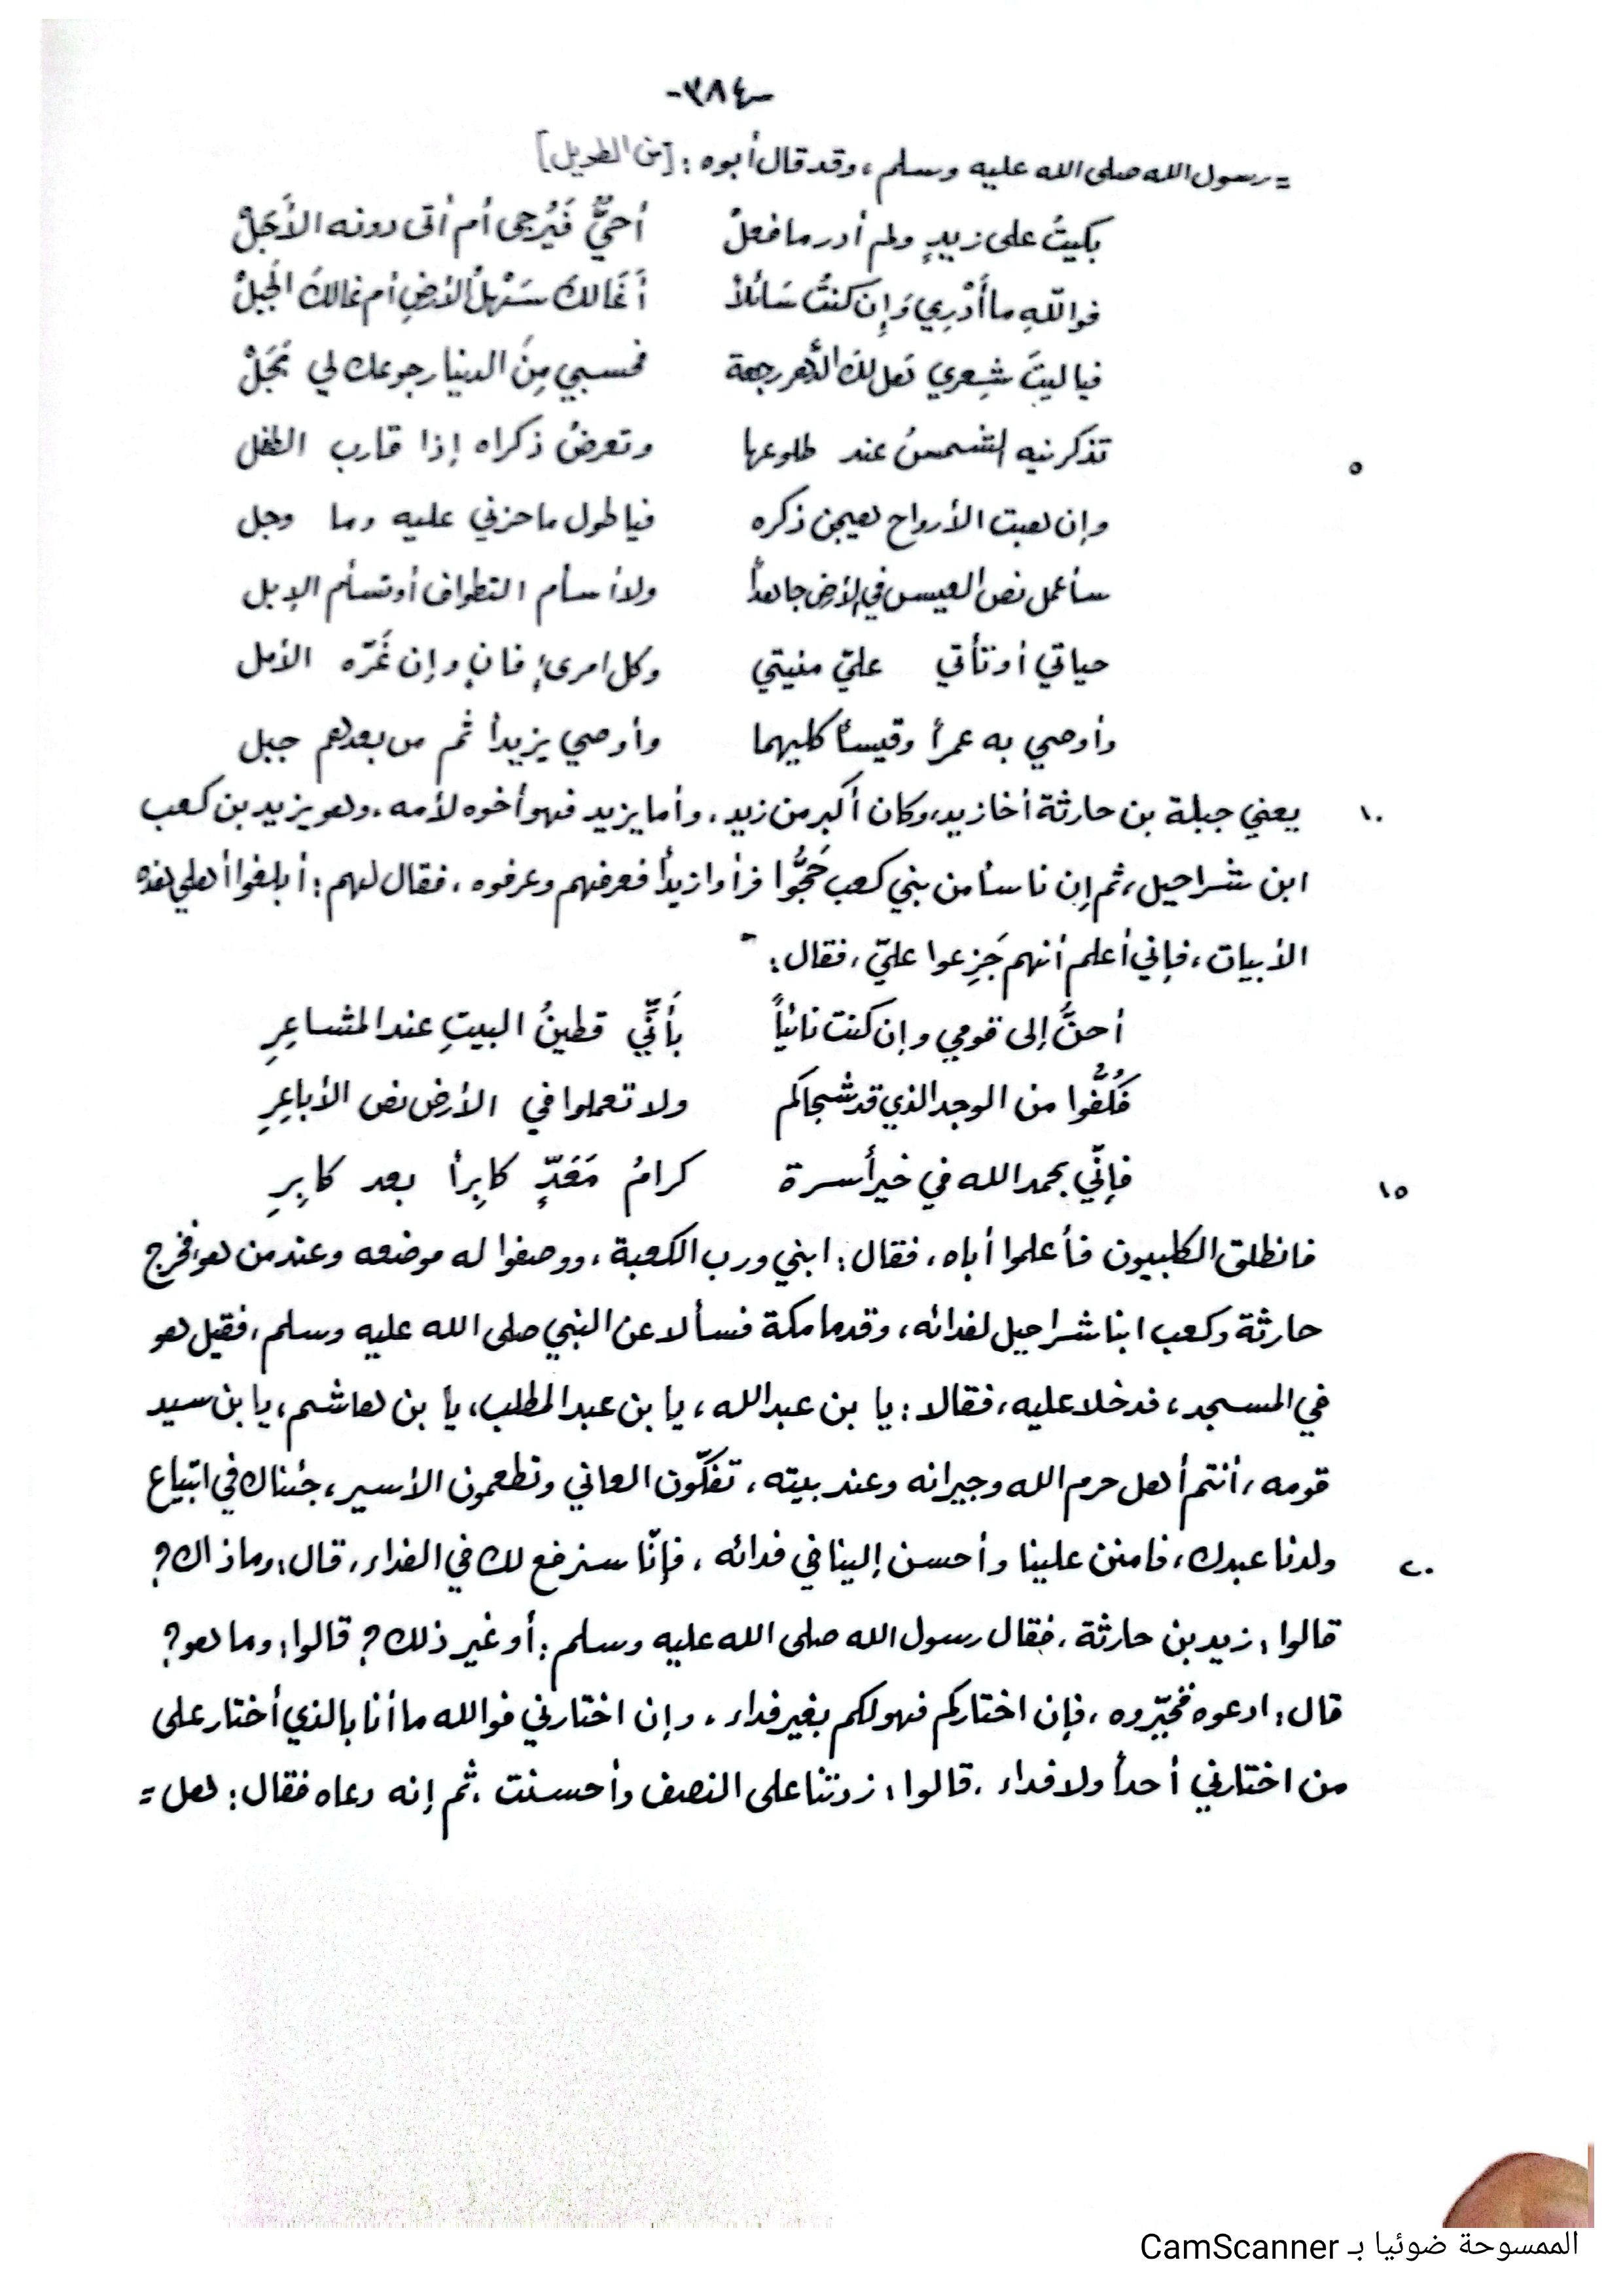 -٣٨٤-
= رسول الله صلى الله عليه وسلم، وقد قال أبوه: [من الطويل]
بكيتُ على زيدٍ ولم أدر ما فعلْ أحيٌّ فَيُرجى أم أتى دونه الأَجَلْ
فواللّهِ ما أَدْرِي وَإِن كنتُ سَائلاً أَغَالكَ سَهْلُ الأرضِ أم غالكَ الجَبلْ
فيا ليتَ شِعري هَل لكَ الدَّهر رجعة فحسبي مِنَ الدنيا رجوعك لي بَجَلْ
٥ تذكرنيه الشمسُ عند طلوعها وتعرضُ ذكراه إذا قارب الطفل
وإن هبت الأرواح هيجن ذكره فيا طول ما حزني عليه وما وجل
سأعمل نص العيس في الأرض جاهداً ولا أسأم التطواف أو تسأم الإبل
حياتي أو تأتي عليّ منيتي وكل امرئٍ فانٍ وإن غَرّه الأمل
وأوصي به عمراً وقيساً كليهما وأوصي يزيداً ثم من بعدهم جبل
١٠ يعني جبلة بن حارثة أخا زيد، وكان أكبر من زيد، وأما يزيد فهو أخوه لأمه، وهو يزيد بن كعب
ابن شراحيل، ثم إن ناساً من بني كعب حَجُّوا فرأوا زيداً فعرفهم وعرفوه، فقال لهم: أبلغوا أهلي هذه
الأبيات، فإني أعلم أنهم جَزِعوا عليّ، فقال:
أحنُّ إلى قومي وإن كنت نائياً بأَنِّي قطينُ البيتِ عند المشاعِرِ
فَكُفُّوا من الوجد الذي قد شجاكم ولا تعملوا في الأرض نص الأباعِرِ
١٥ فإنّي بحمد الله في خير أسرة كرامُ مَعَدٍّ كابِراً بعد كابِرِ
فانطلق الكلبيون فأعلموا أباه، فقال: ابني ورب الكعبة، ووصفوا له موضعه وعند من هو، فخرج
حارثة وكعب ابنا شراحيل لفدائه، وقدما مكة فسألا عن النبي صلى الله عليه وسلم، فقيل هو
في المسجد، فدخلا عليه، فقالا: يا بن عبد الله، يا بن عبد المطلب، يا بن هاشم، يا بن سيد
قومه، أنتم أهل حرم الله وجيرانه وعند بيته، تفكّون العاني وتطعمون الأسير، جئناك في ابتياع
٢٠ ولدنا عبدك، فامنن علينا وأحسن إلينا في فدائه، فإنّا سنرفع لك في الفداء، قال: وما ذاك؟
قالوا: زيد بن حارثة، فقال رسول الله صلى الله عليه وسلم: أو غير ذلك؟ قالوا: وما هو؟
قال: ادعوه فخيّروه، فإن اختاركم فهو لكم بغير فداء، وإن اختارني فوالله ما أنا بالذي أختار على
من اختارني أحداً ولا فداء، قالوا: زدتنا على النصف وأحسنت، ثم إنه دعاه فقال: هل =
الممسوحة ضوئيا بـ CamScanner